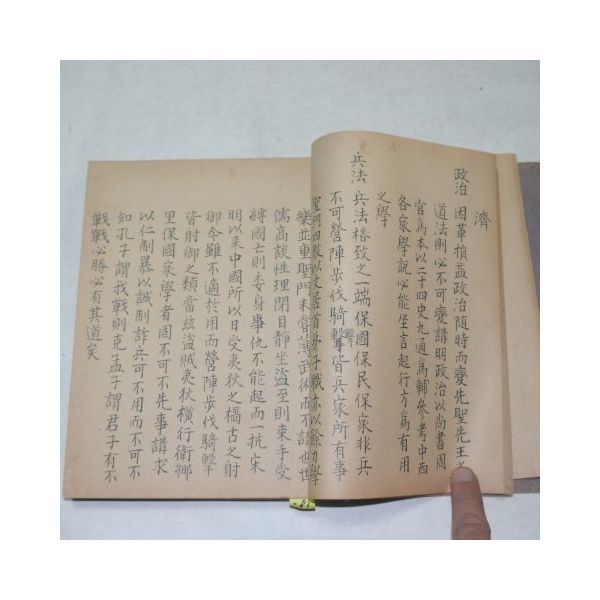 濟
政治 因革損益政治随時而變先聖先王
道法則必不可變講明政治以尚書周
官爲本以二十四史九通爲輔參考中西
各家學説必能坐言起行方爲有用
之學
兵法 兵法格致之一端保國保民保家非兵
不可營陣步伐騎擊皆兵家所有事
聖門四教以文居首弟子職亦以餘力學
樂並重聖門未嘗薄武術而不講也世
儒高談性理閉目靜坐盜至則束手受
縛國亡則委身事仇不能起而一抗宋
明以來中國所以日受夷狄之禍古之射
御今雖不適於用而營陣步伐騎擊
皆射御之類當兹盜賊夷狄橫行衛鄉
里保國家學者固不可不先事講求
以仁制暴以誠制詐兵可不用而不可不
知孔子謂我戰則克孟子謂君子有不
戰戰必勝必有其道矣